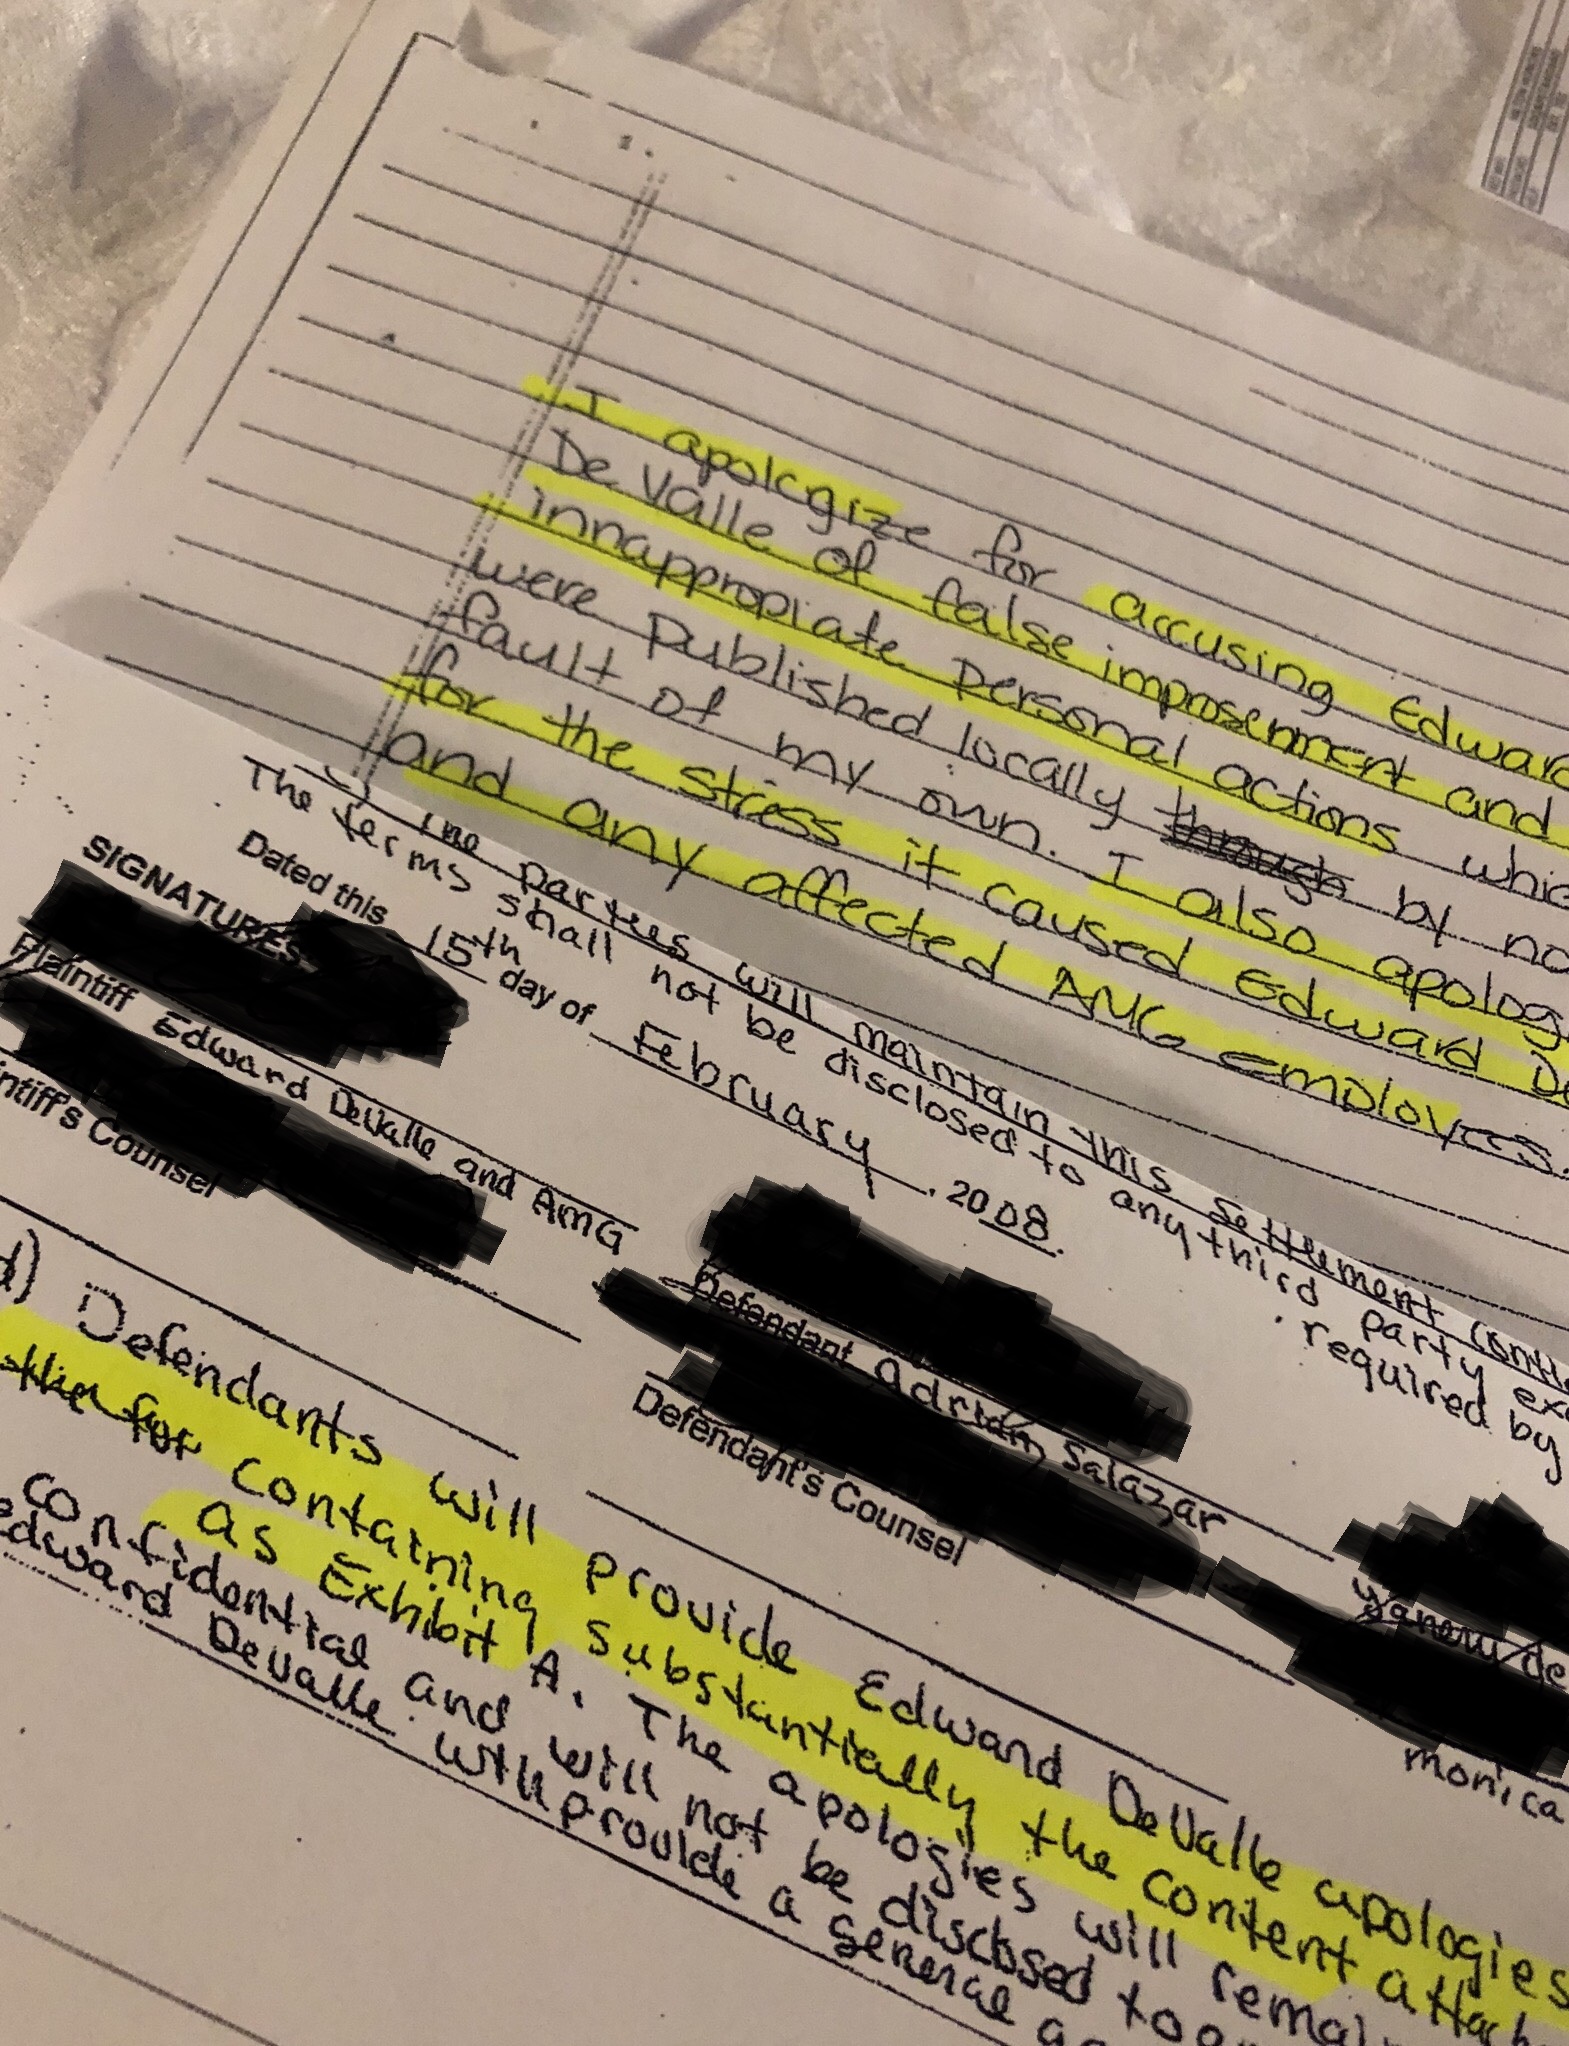 I apologize for accusing Edward
De Valle of false imprisenment and
innappropiate Personal actions whic
were Published locally through by no
fault of my own. I also apolog
for the stress it caused Edward De
and any affected AMG employees.
The parties will maintain this settlement
The terms shall not be disclosed to any third party exc
required by
Dated this 15th day of February, 2008.
SIGNATURES
Plaintiff Edward DeValle and AMG
intiff's Counsel
Defendant Adrian Salazar
Defendant's Counsel
monica
d) Defendants will provide Edward DeValle apologies
for containing substantially the content attach
as Exhibit A. The apologies will remai
confidential and will not be disclosed to
Edward DeValle will provide a general